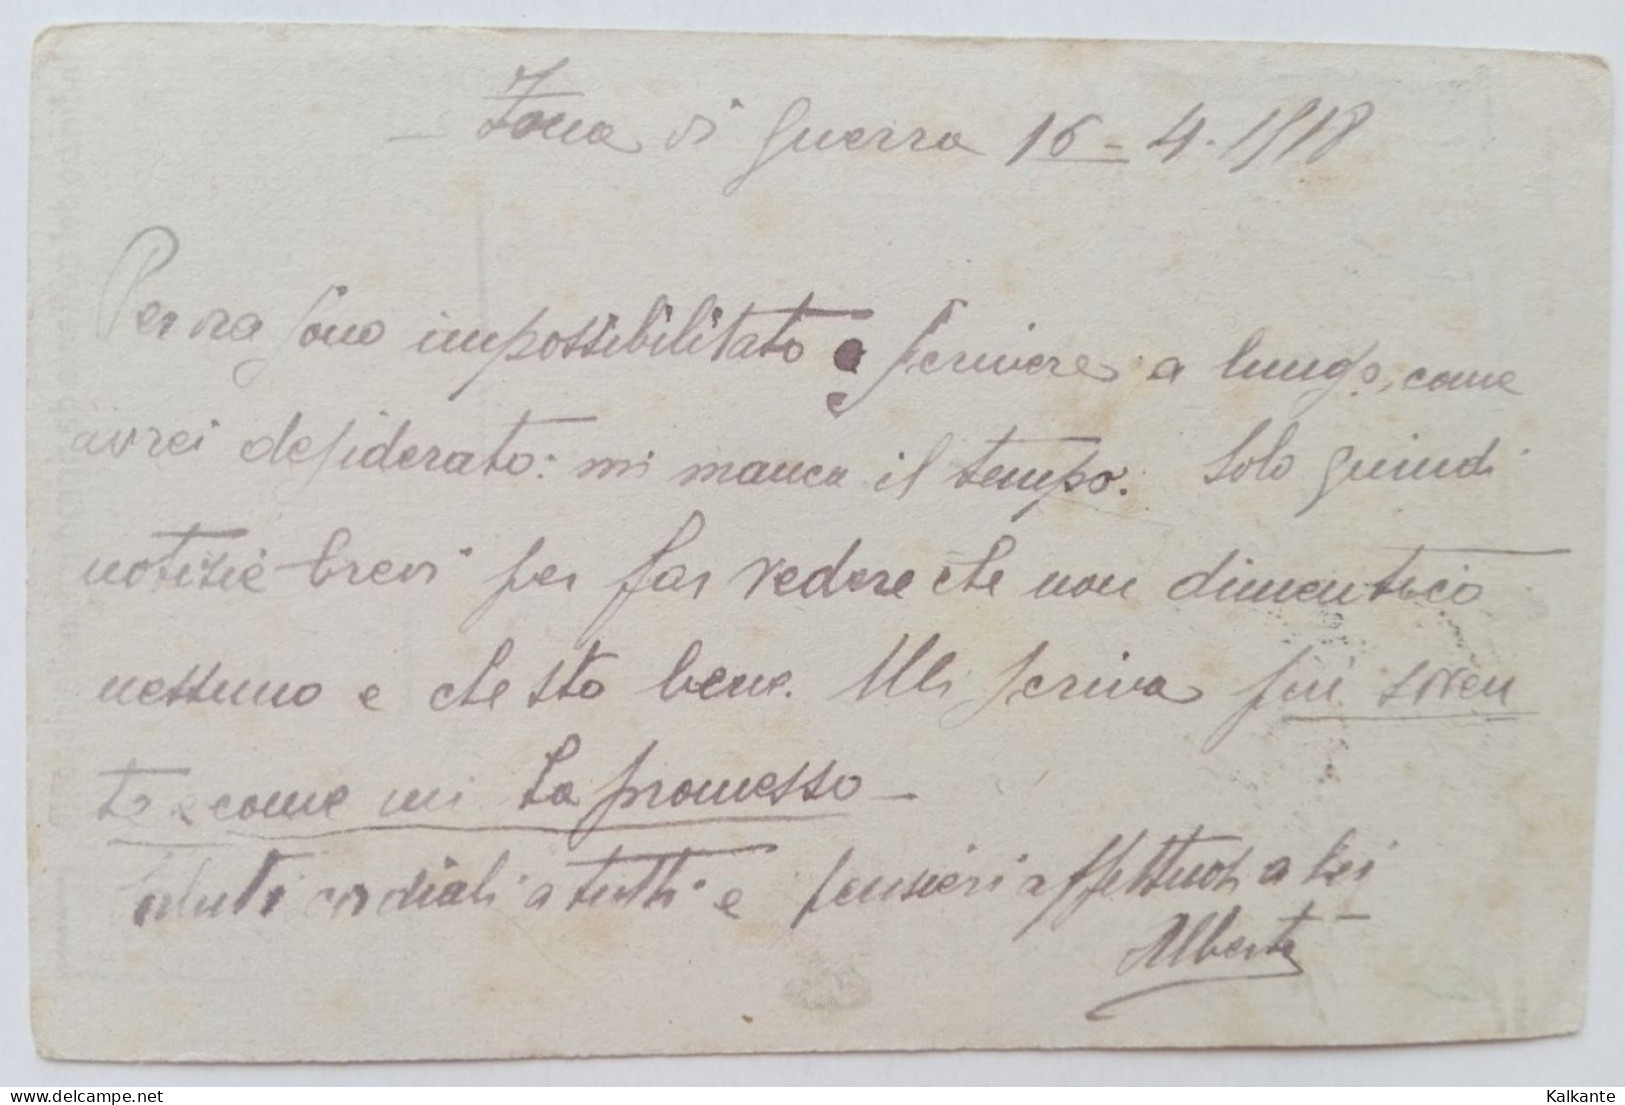 – Zona di guerra 16 – 4. 1918
Per ora sono impossibilitato a scrivere a lungo, come
avrei desiderato: mi manca il tempo. Solo quindi
notizie brevi per far vedere che non dimentico
nessuno e che sto bene. Mi scriva più soven
te come mi ha promesso –
Saluti cordiali a tutti e pensieri affettuosi a Lei
Alberto
delcampe.net
Kalkante